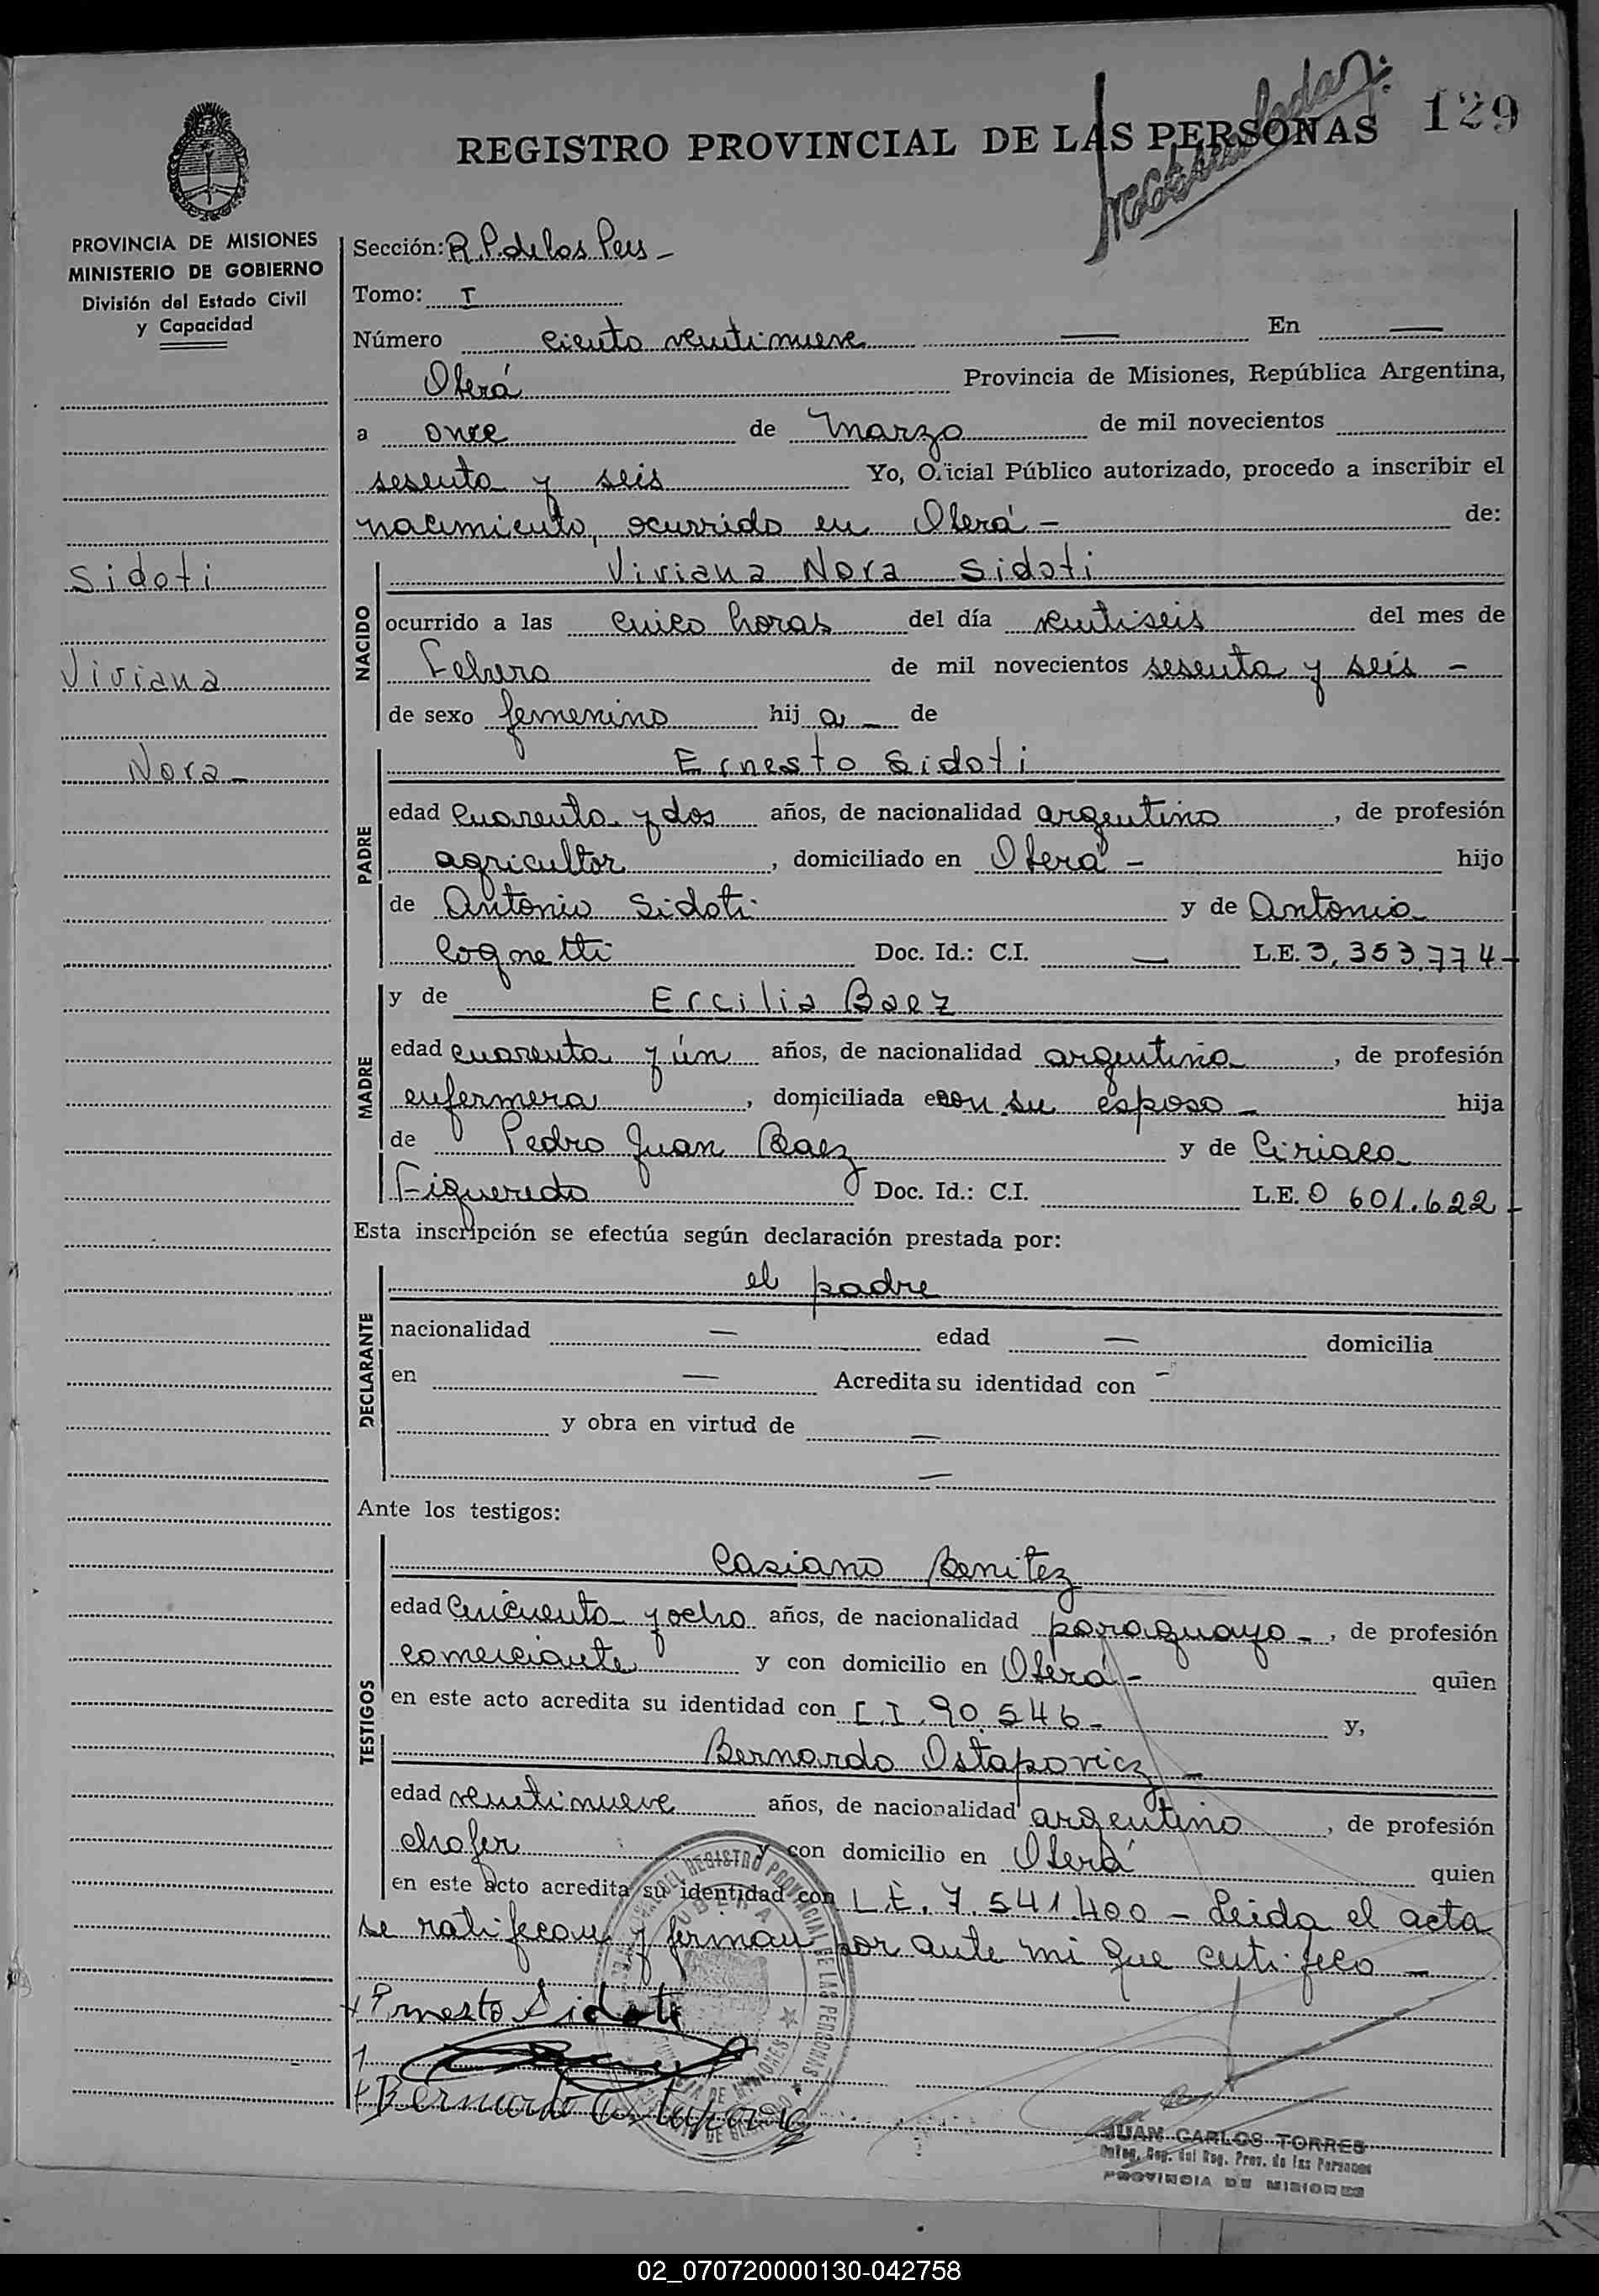 Matriculada.
129
REGISTRO PROVINCIAL DE LAS PERSONAS
PROVINCIA DE MISIONES
MINISTERIO DE GOBIERNO
División del Estado Civil
y Capacidad
Sección: R.P. de las Pers -
Tomo: I
Número ciento veintinueve — En —
Oberá Provincia de Misiones, República Argentina,
a once de Marzo de mil novecientos
sesenta y seis Yo, Oficial Público autorizado, procedo a inscribir el
nacimiento, ocurrido en Oberá - de:
Sidoti
Viviana
Nora -
NACIDO
Viviana Nora Sidoti
ocurrido a las cinco horas del día veintiseis del mes de
Febrero de mil novecientos sesenta y seis -
de sexo femenino hij a - de
PADRE
Ernesto Sidoti
edad cuarenta y dos años, de nacionalidad argentino, de profesión
agricultor, domiciliado en Oberá - hijo
de Antonio Sidoti y de Antonia
Cognetti Doc. Id.: C.I. — L.E. 3,353.774 -
MADRE
y de Ercilia Baez
edad cuarenta y ún años, de nacionalidad argentina, de profesión
enfermera, domiciliada con su esposo - hija
de Pedro Juan Baez y de Ciriaca
Figueredo Doc. Id.: C.I. L.E. 0 601.622 -
Esta inscripción se efectúa según declaración prestada por:
DECLARANTE
el padre
nacionalidad — edad — domicilia
en — Acredita su identidad con -
y obra en virtud de —
—
Ante los testigos:
TESTIGOS
Casiano Benitez
edad cincuenta y ocho años, de nacionalidad paraguayo -, de profesión
comerciante y con domicilio en Oberá - quien
en este acto acredita su identidad con C.I. 90.546 - y,
Bernardo Ostapovicz -
edad veintinueve años, de nacionalidad argentino, de profesión
chofer y con domicilio en Oberá quien
en este acto acredita su identidad con L.E. 7.541.400 - Leida el acta
se ratifecan y firman por ante mi que certifeco -
Ernesto Sidoti
JUAN CARLOS TORRES
PROVINCIA DE MISIONES
02_070720000130-042758